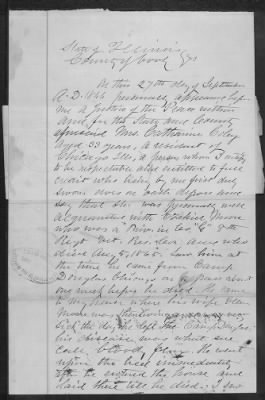 State of Illinois
County of Cook } ss
On this 27th day of September
A.D. 1866 personally appeared before
me a Justice of the Peace within
and for the State and County
aforesaid Mrs. Catharine
Aged 53 years, a resident of
Chicago Ills, a person whom I certify
to be respectable and entitled to full
credit who being by me first duly
sworn does on oath depose and
say that she was personally well
acquainted with
who was a Priv. in Co "G" 8th
Regt Vet. Res. Corps and who
died Aug 5, 1865. Saw him at
the time he came from Camp
Douglas Chicago on a about
one week before he died. He came
to my house where his wife Ellen
Moore was
sick the day he left the Camp Douglas
his disease was what we
call bloody flux. He went
upon the bed immediately
after he entered the house and
laid there till he died. I saw